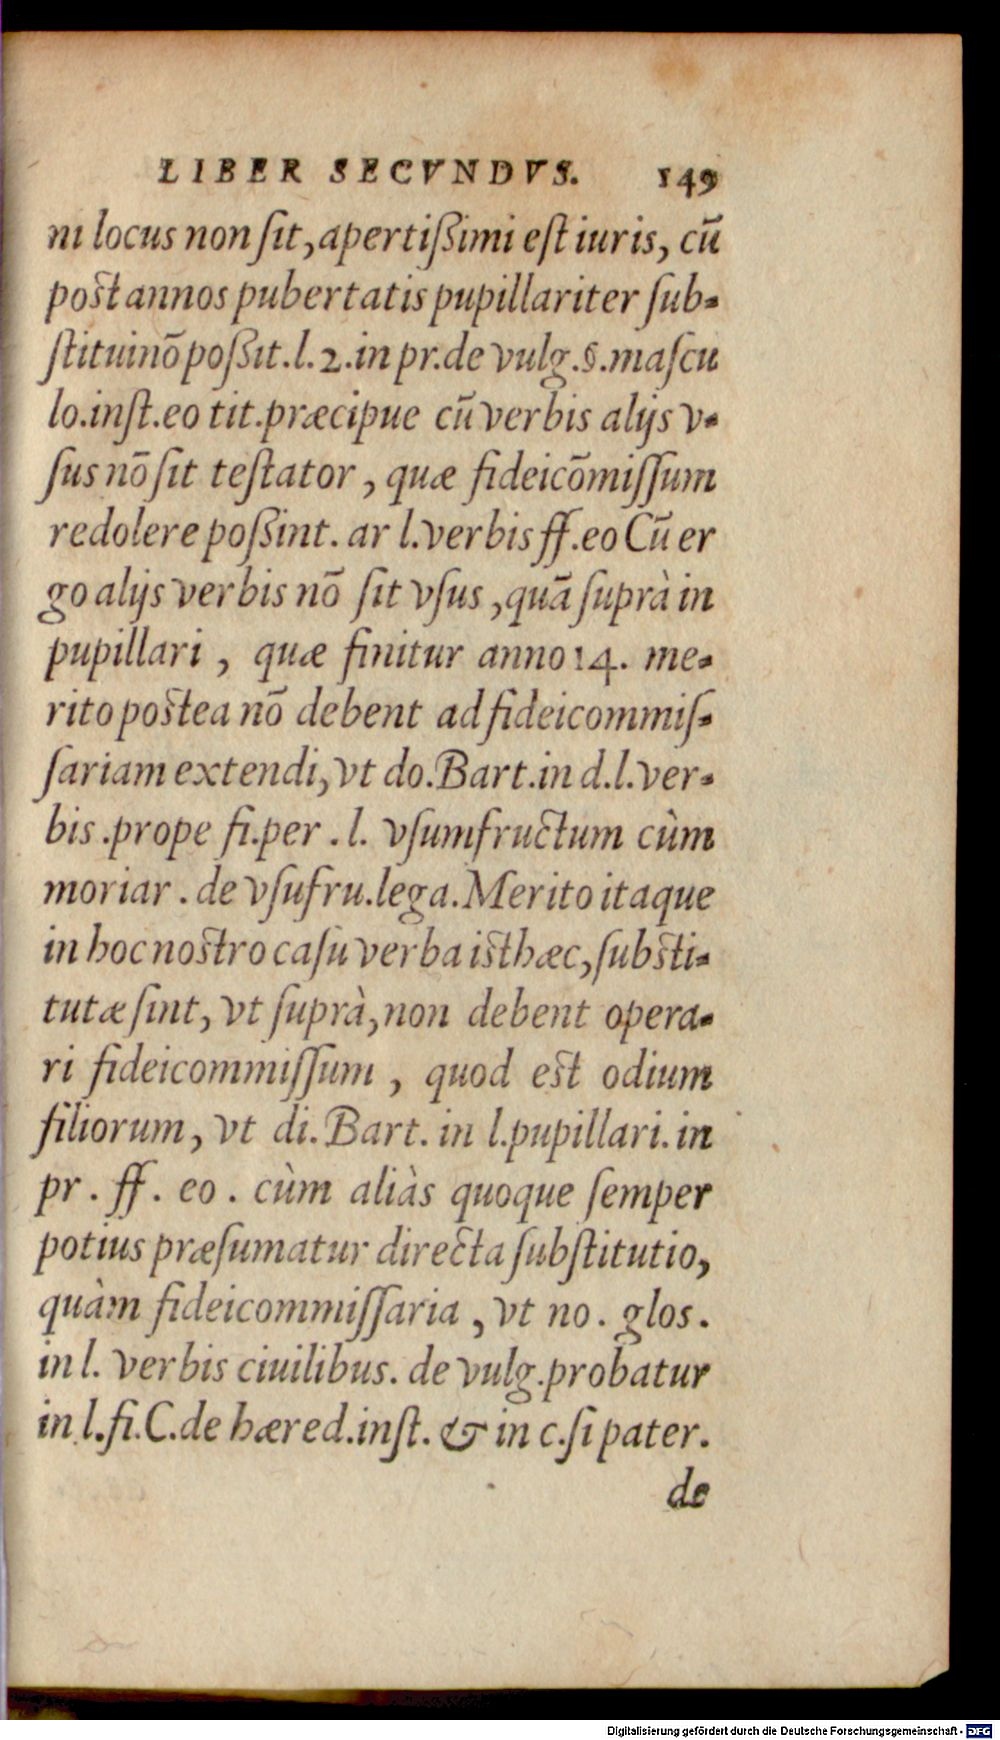 LIBER SECVNDVS. 149
ni locus non ſit, apertißimi eſt iuris, cū
post annos pubertatis pupillariter ſub-
ſtitui nō poßit. l. 2. in pr. de vulg. §. maſcu
lo. inſt. eo tit. præcipue cū verbis alijs v-
ſus nō ſit teſtator, quæ fideicōmiſſum
redolere poßint. ar l. verbis ff. eo Cū er
go alijs verbis nō ſit vſus, quā suprà in
pupillari, quæ finitur anno 14. me-
rito postea nō debent ad fideicommiſ-
ſariam extendi, vt do. Bart. in d. l. ver-
bis. prope fi. per. l. vſumfructum cùm
moriar. de vſufru. lega. Merito itaque
in hoc nostro caſu verba isthæc, ſubsti-
tutæ ſint, vt ſuprà, non debent opera-
ri fideicommiſſum, quod est odium
filiorum, vt di. Bart. in l. pupillari. in
pr. ff. eo. cùm aliàs quoque ſemper
potius præſumatur directa ſubſtitutio,
quàm fideicommiſſaria, vt no. glos.
in l. verbis ciuilibus. de vulg. probatur
in l. fi. C. de hæred. inſt. & in c. ſi pater.
de
Digitalisierung gefördert durch die Deutsche Forschungsgemeinschaft - DFG